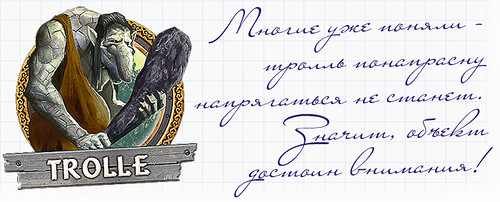 Многие уже поняли -
тролль понапрасну
напрягаться не станет.
Значит, объект
достоин внимания!
TROLLE